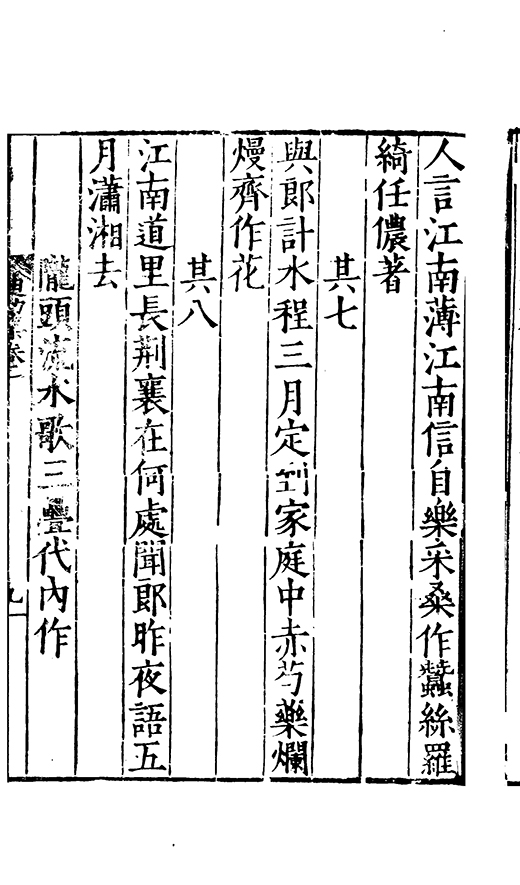 人言江南薄江南信自樂采桑作蠶絲羅
綺任儂著
其七
與郎計水程三月定到家庭中赤芍藥爛
熳齊作花
其八
江南道里長荆襄在何處聞郎昨夜語五
月瀟湘去
隴頭流水歌三疊代內作
九